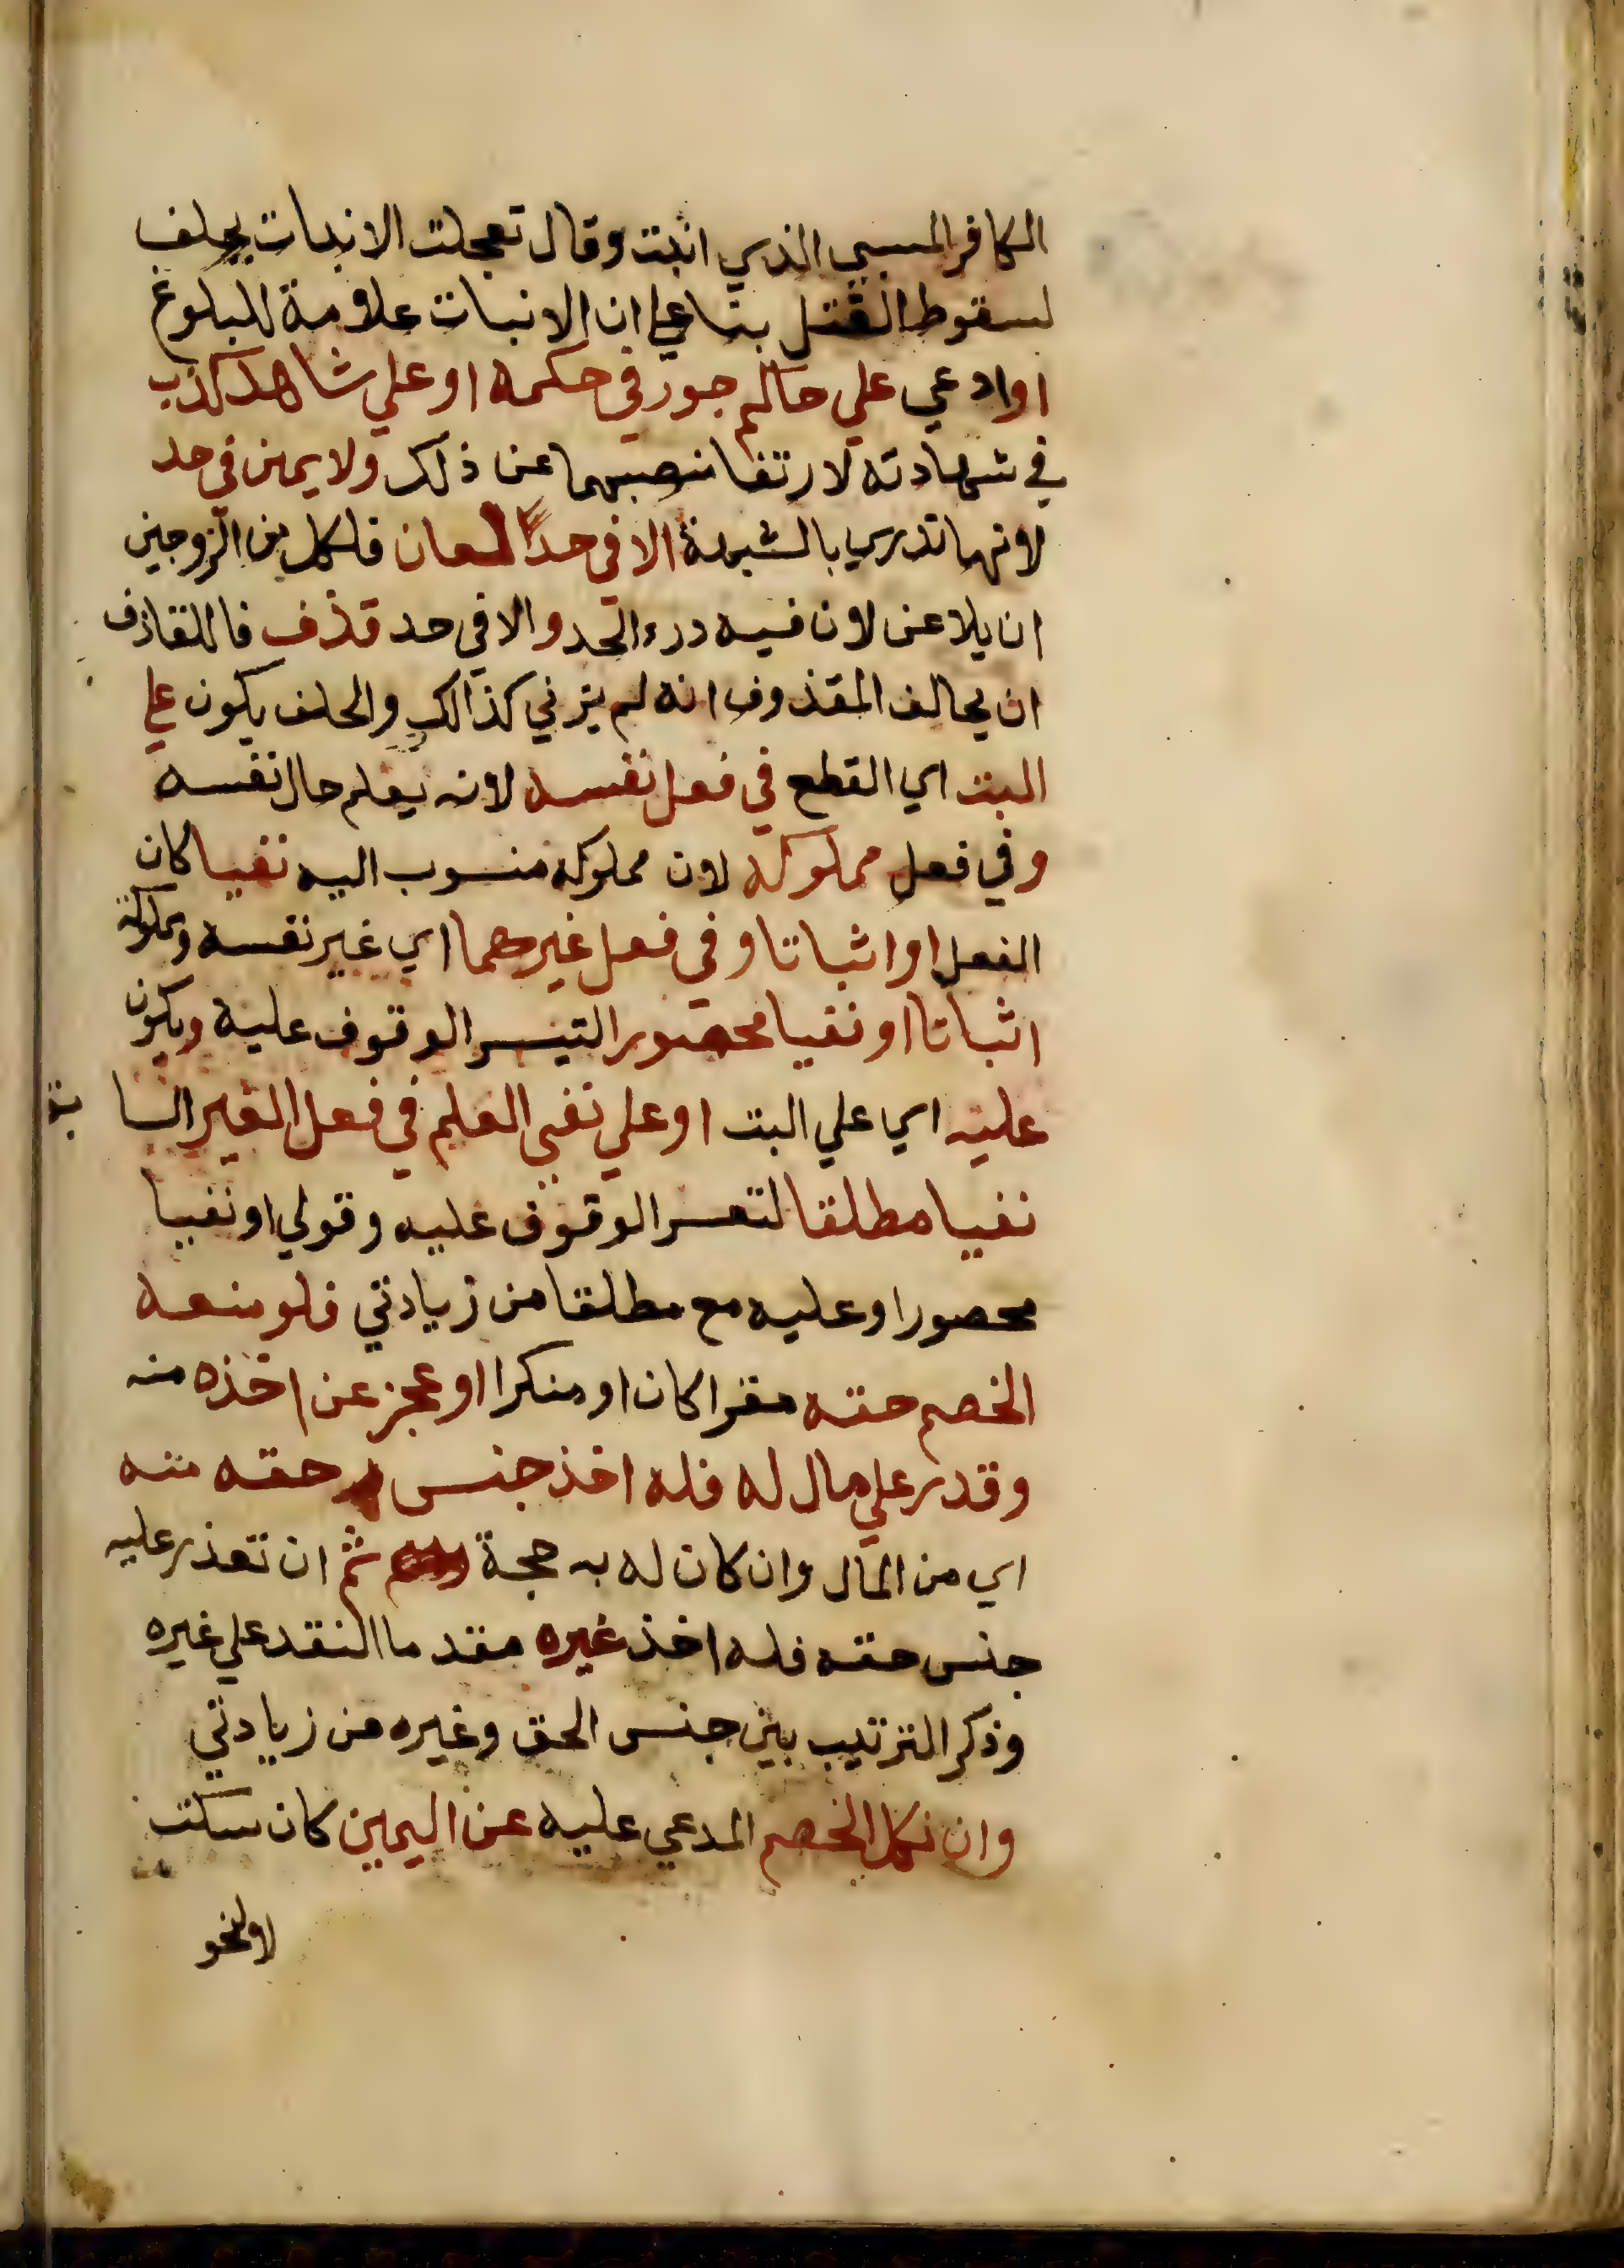 الكافر المسبي الذي انبت وقال تعجلت الانبات يحلف
لسقوط القتل بنا علي ان الانبات علامة للبلوغ
او ادعي علي حاكم جور في حكمه او علي شاهد كذب
في شهادته لارتفا منصبهما عن ذلك ولا يمين في حد
لانها تدري بالشبهة الا في حد لعان فلكل من الزوجين
ان يلاعن لان فيه درء الحد والا في حد قذف فاللقاذف
ان يحالف المقذوف انه لم يزني كذالك والحلف يكون علي
البت اي القطع في فعل نفسه لانه يعلم حال نفسه
وفي فعل مملوكه لان مملوكه منسوب اليه نفيا كان
الفعل او اثباتا وفي فعل غيرهما اي غير نفسه ومملوكه
اثباتا او نفيا محصورا لتيسر الوقوف عليه ويكون
عليه اي علي البت او علي نفي العلم في فعل الغير السا بق
نفيا مطلقا لتعسر الوقوف عليه وقولي او نفيا
محصورا وعليه مع مطلقا من زيادتي فلو منعه
الخصم حقه مقرا كان او منكرا او عجز عن اخذه منه
وقدر علي مال له فله اخذ جنس حقه منه
اي من المال وان كان له به حجة ثم ان تعذر عليه
جنس حقه فله اخذ غيره مقدما النقد علي غيره
وذكر الترتيب بين جنس الحق وغيره من زيادتي
وان نكل الخصم المدعي عليه عن اليمين كان سكت
لا لنحو